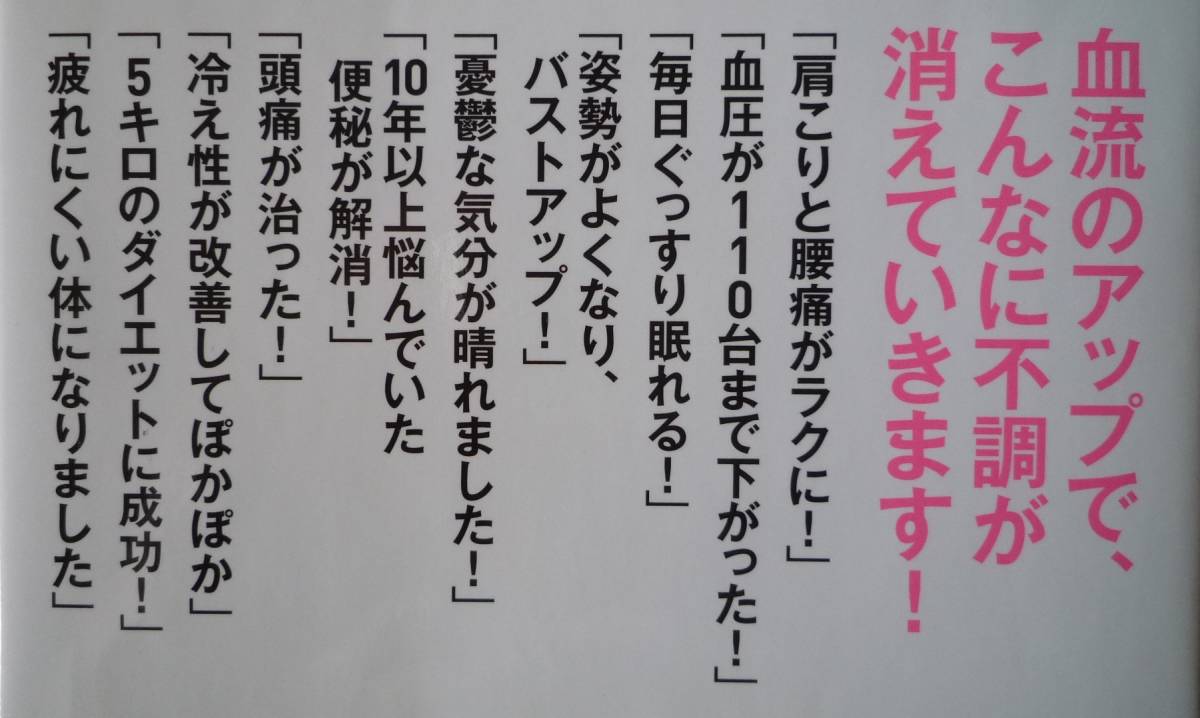 血流のアップで、
こんなに不調が
消えていきます！
「肩こりと腰痛がラクに！」
「血圧が110台まで下がった！」
「毎日ぐっすり眠れる！」
「姿勢がよくなり、
バストアップ！」
「憂鬱な気分が晴れました！」
「10年以上悩んでいた
便秘が解消！」
「頭痛が治った！」
「冷え性が改善してぽかぽか」
「5キロのダイエットに成功！」
「疲れにくい体になりました」